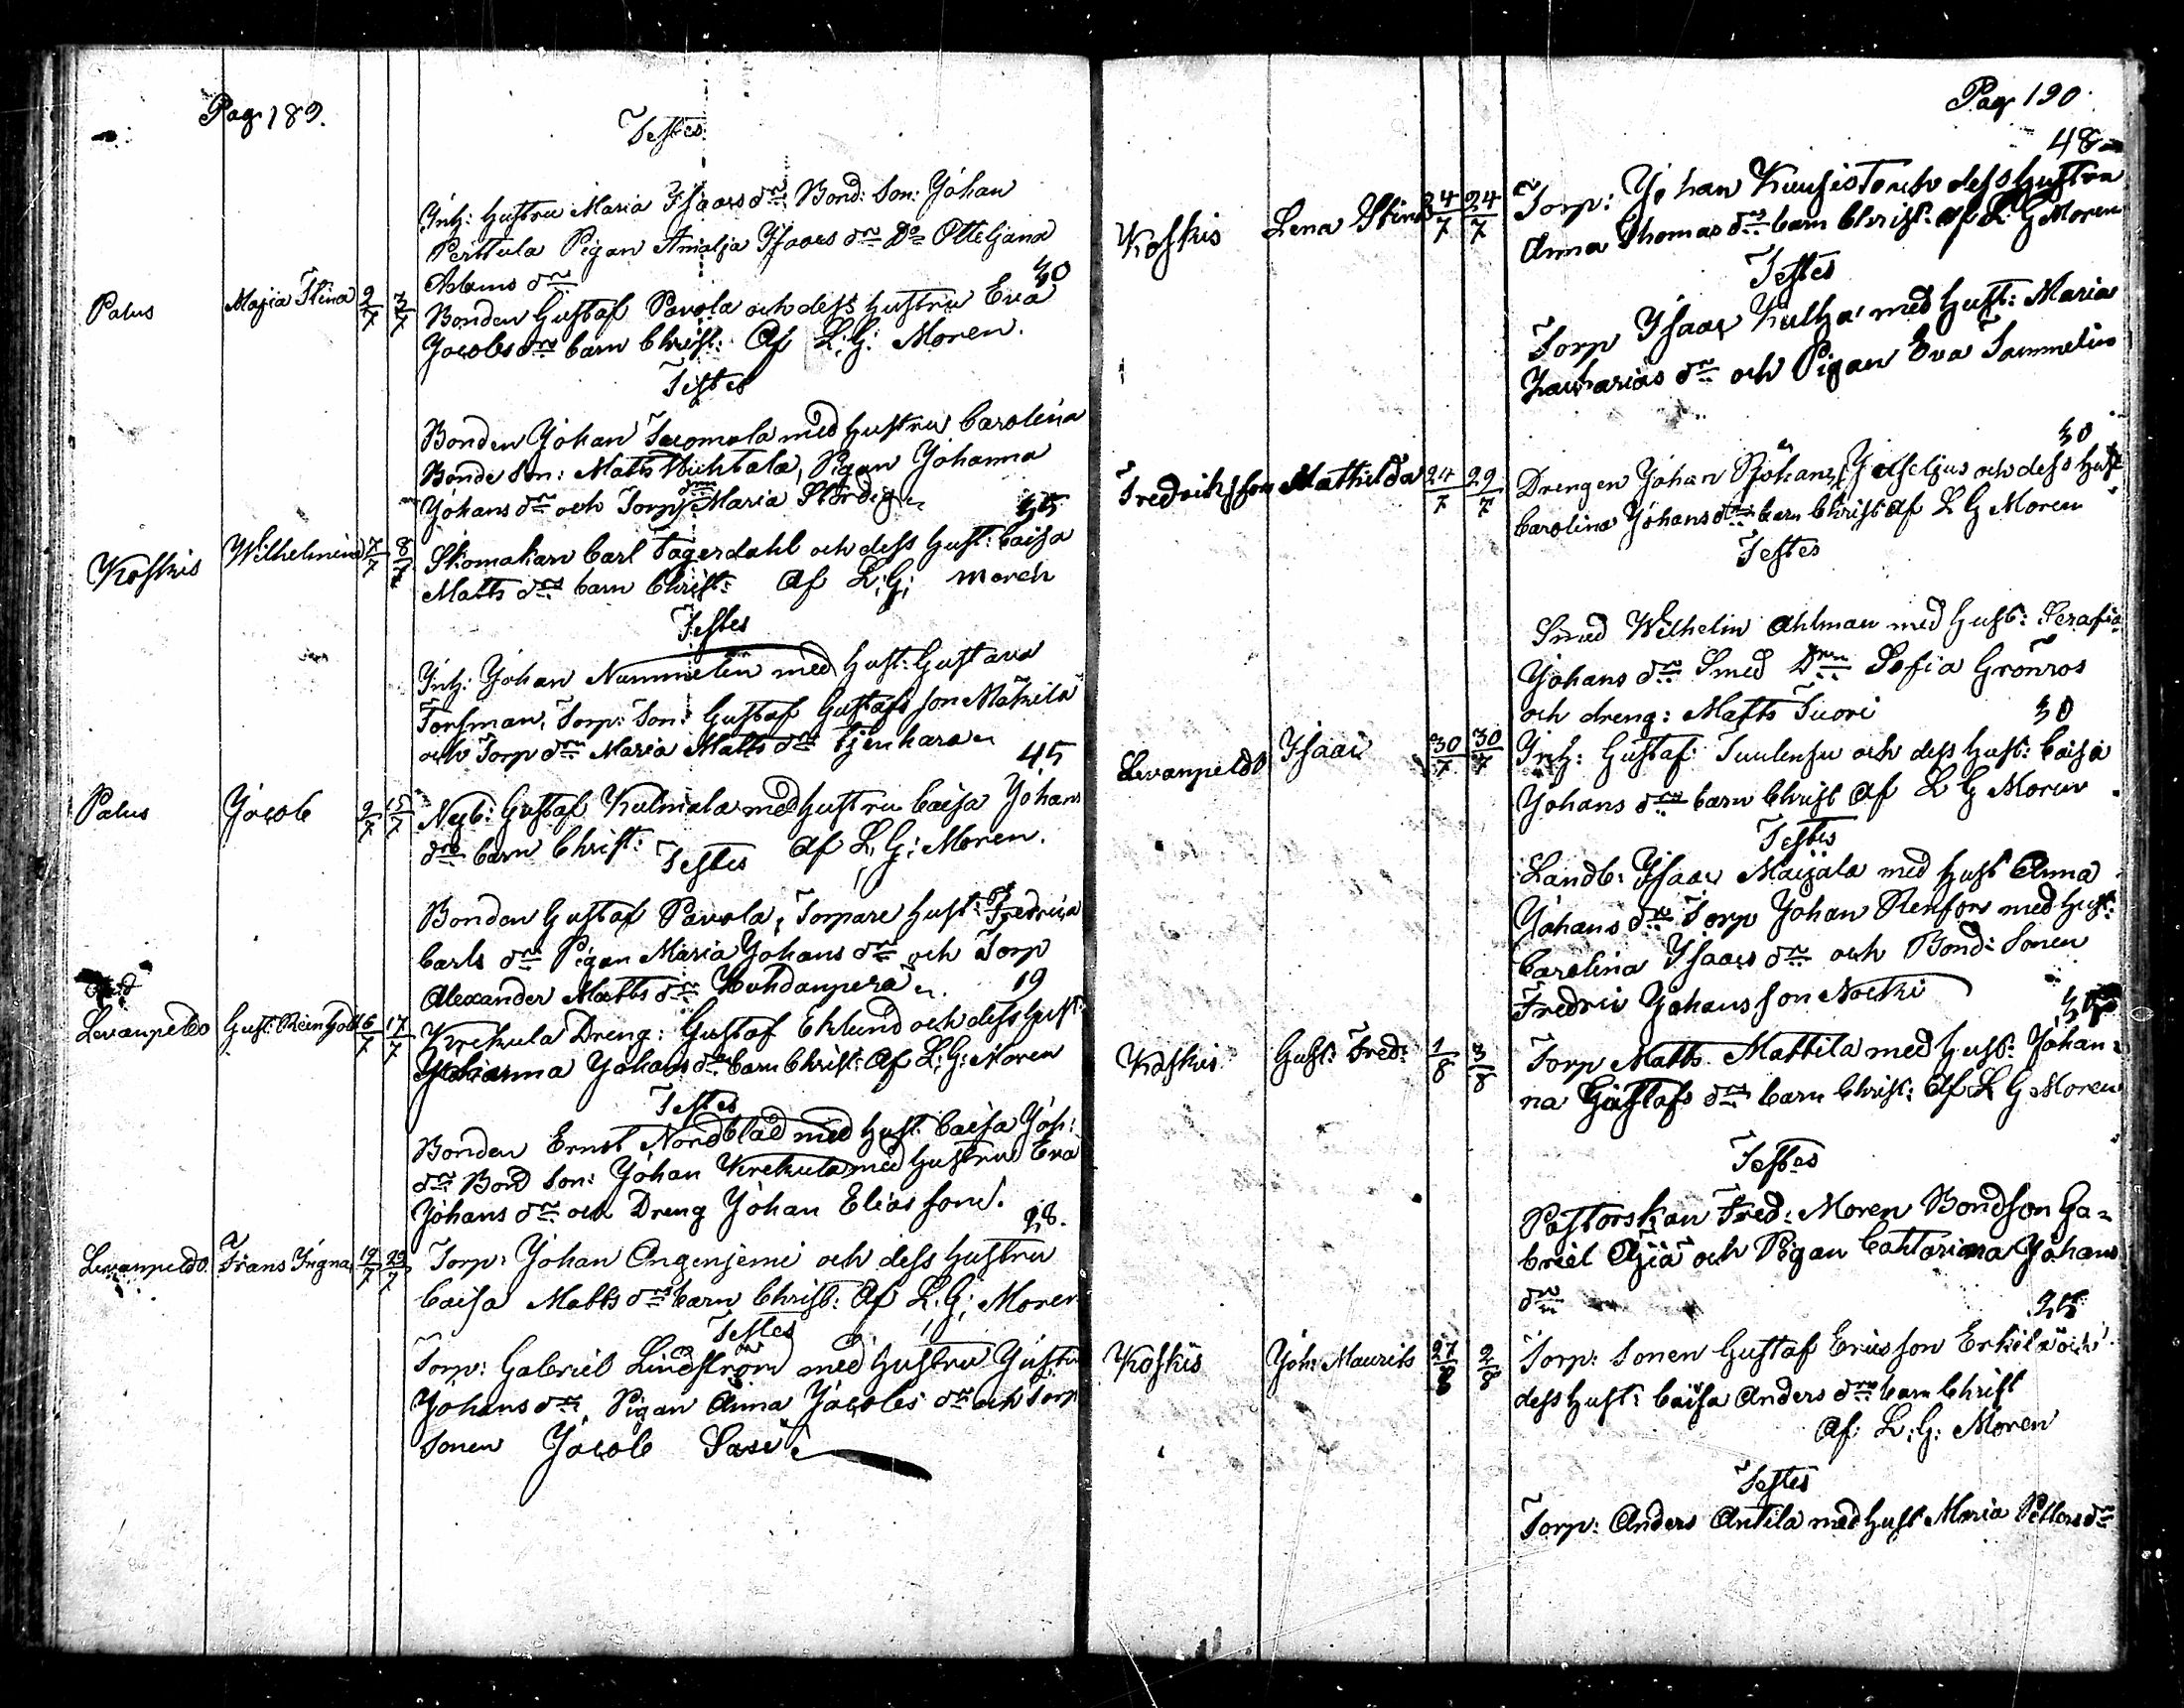 Pag. 189.
Testes
Inh: hustru Maria Isaacs dr Bond: Son: Johan
Perttula Pigan Amalja Isaacs dr Do Otteljana
Adams dr
30
Palus Maja Stina 2/7 3/7 Bonden Gustaf Pavola och dess hustru Eva
Jacobs dr barn Christ: Af L: G: Moren.
Testes
Bonden Johan Tuomola med hustru Carolina
Bonde Son: Matts Huhtala, Pigan Johanna
Johans dr och Torp dr Maria Stördig
35
Koskis Wilhelmina 7/7 8/7 Skomakarn Carl Fagerdahl och dess hust: Caisa
Matts dr barn Christ: Af L: G: Moren
Testes
Inh: Johan Nummelin med hust: Gustava
Forsman, Torp: Son: Gustaf Gustafs son Mäkilä
och Torp dr Maria Matts dr
45
Palus Jacob 9/7 15/7 Nyb: Gustaf Kulmala med hustru Caisa Johans
dr barn Christ: Af L: G: Moren.
Testes
Bonden Gustaf Pavola, Torpare hust: Fredrica
Carls dr Pigan Maria Johans dr och Torp
Alexander Matts dr
19
Levanpelto Gust: Reinhold 6/7 17/7 Krekula Dreng: Gustaf Eklund och dess hust:
Johanna Johans dr barn Christ: Af L: G: Moren
Testes
Bonden Ernst Nordblad med hust. Caisa Joh:
dr Bond Son: Johan Krekula med hustru Eva
Johans dr och Dreng Johan Elias son.
28.
Levanpelto Frans 19/7 23/7 Torp: Johan Ongenjemi och dess hustru
Caisa Matts dr barn Christ: Af L: G: Moren
Testes
Torp: Gabriel Lindström med hustru Justina
Johans dr, Pigan Anna Jacobs dr och Torp
Sonen Jacob Sasi
Pag. 190.
48
Koskis Lena Stina 24/7 24/7 Torp: Johan Kuusisto och dess hustru
Anna Thomas dr barn Christ: Af L: G Moren
Testes
Torp Isaac Kulha med hust: Maria
Zacharias dr och Pigan Eva Tammelin
30
Fredriksson Mathilda 24/7 29/7 Drengen Johan och dess hust
Carolina Johans dr barn Christ Af L G Moren
Testes
Smed Wilhelm Ahlman med hust: Serafia
Johans dr Smed Drn Sofia Grönros
och dreng: Matts Tuori
30
Levanpelto Isaac 30/7 30/7 Inh: Gustaf Tuulensu och dess hust: Caisa
Johans dr barn Christ Af L G Moren
Testes
Landb: Isaac Maijala med hust Anna
Johans dr Torp Johan Renfors med hust:
Carolina Isaacs dr och Bond: Sonen
Fredric Johans son Nocki
35
Koskis Gust: Fred: 1/8 3/8 Torp Matts Mattila med hust: Johan=
na Gustafs dr barn Christ: Af L G Moren
Testes
Pastorskan Fred: Moren Bondson Ga=
briel Äjiä och Pigan Cahtarina Johans
dr
25
Koskis Joh: Maurits 27/8 2/8 Torp: Sonen Gustaf Ericsson Erkilä och
dess hust: Caisa Anders dr barn Christ
Af: L: G: Moren
Testes
Torp: Anders Antila med hust Maria Petters dr